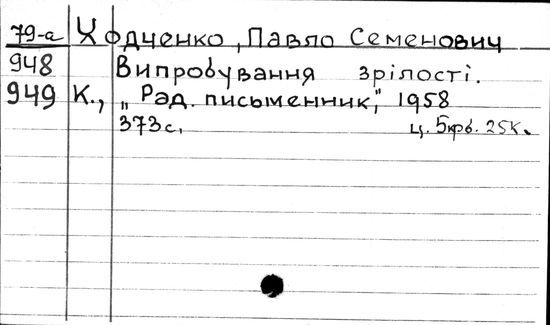 79-а Ходченко, Павло Семенович
948 Випробування зрілості.
949 К., „Рад. письменник", 1958
373с. ц. 5крб. 25к.